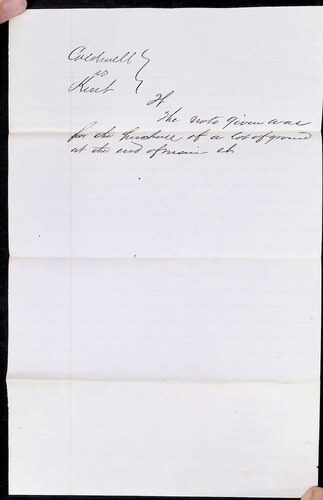 Caldwell }
vs
Kent }
If
The note given was
for the purchase of a lot of ground
at the end of main st